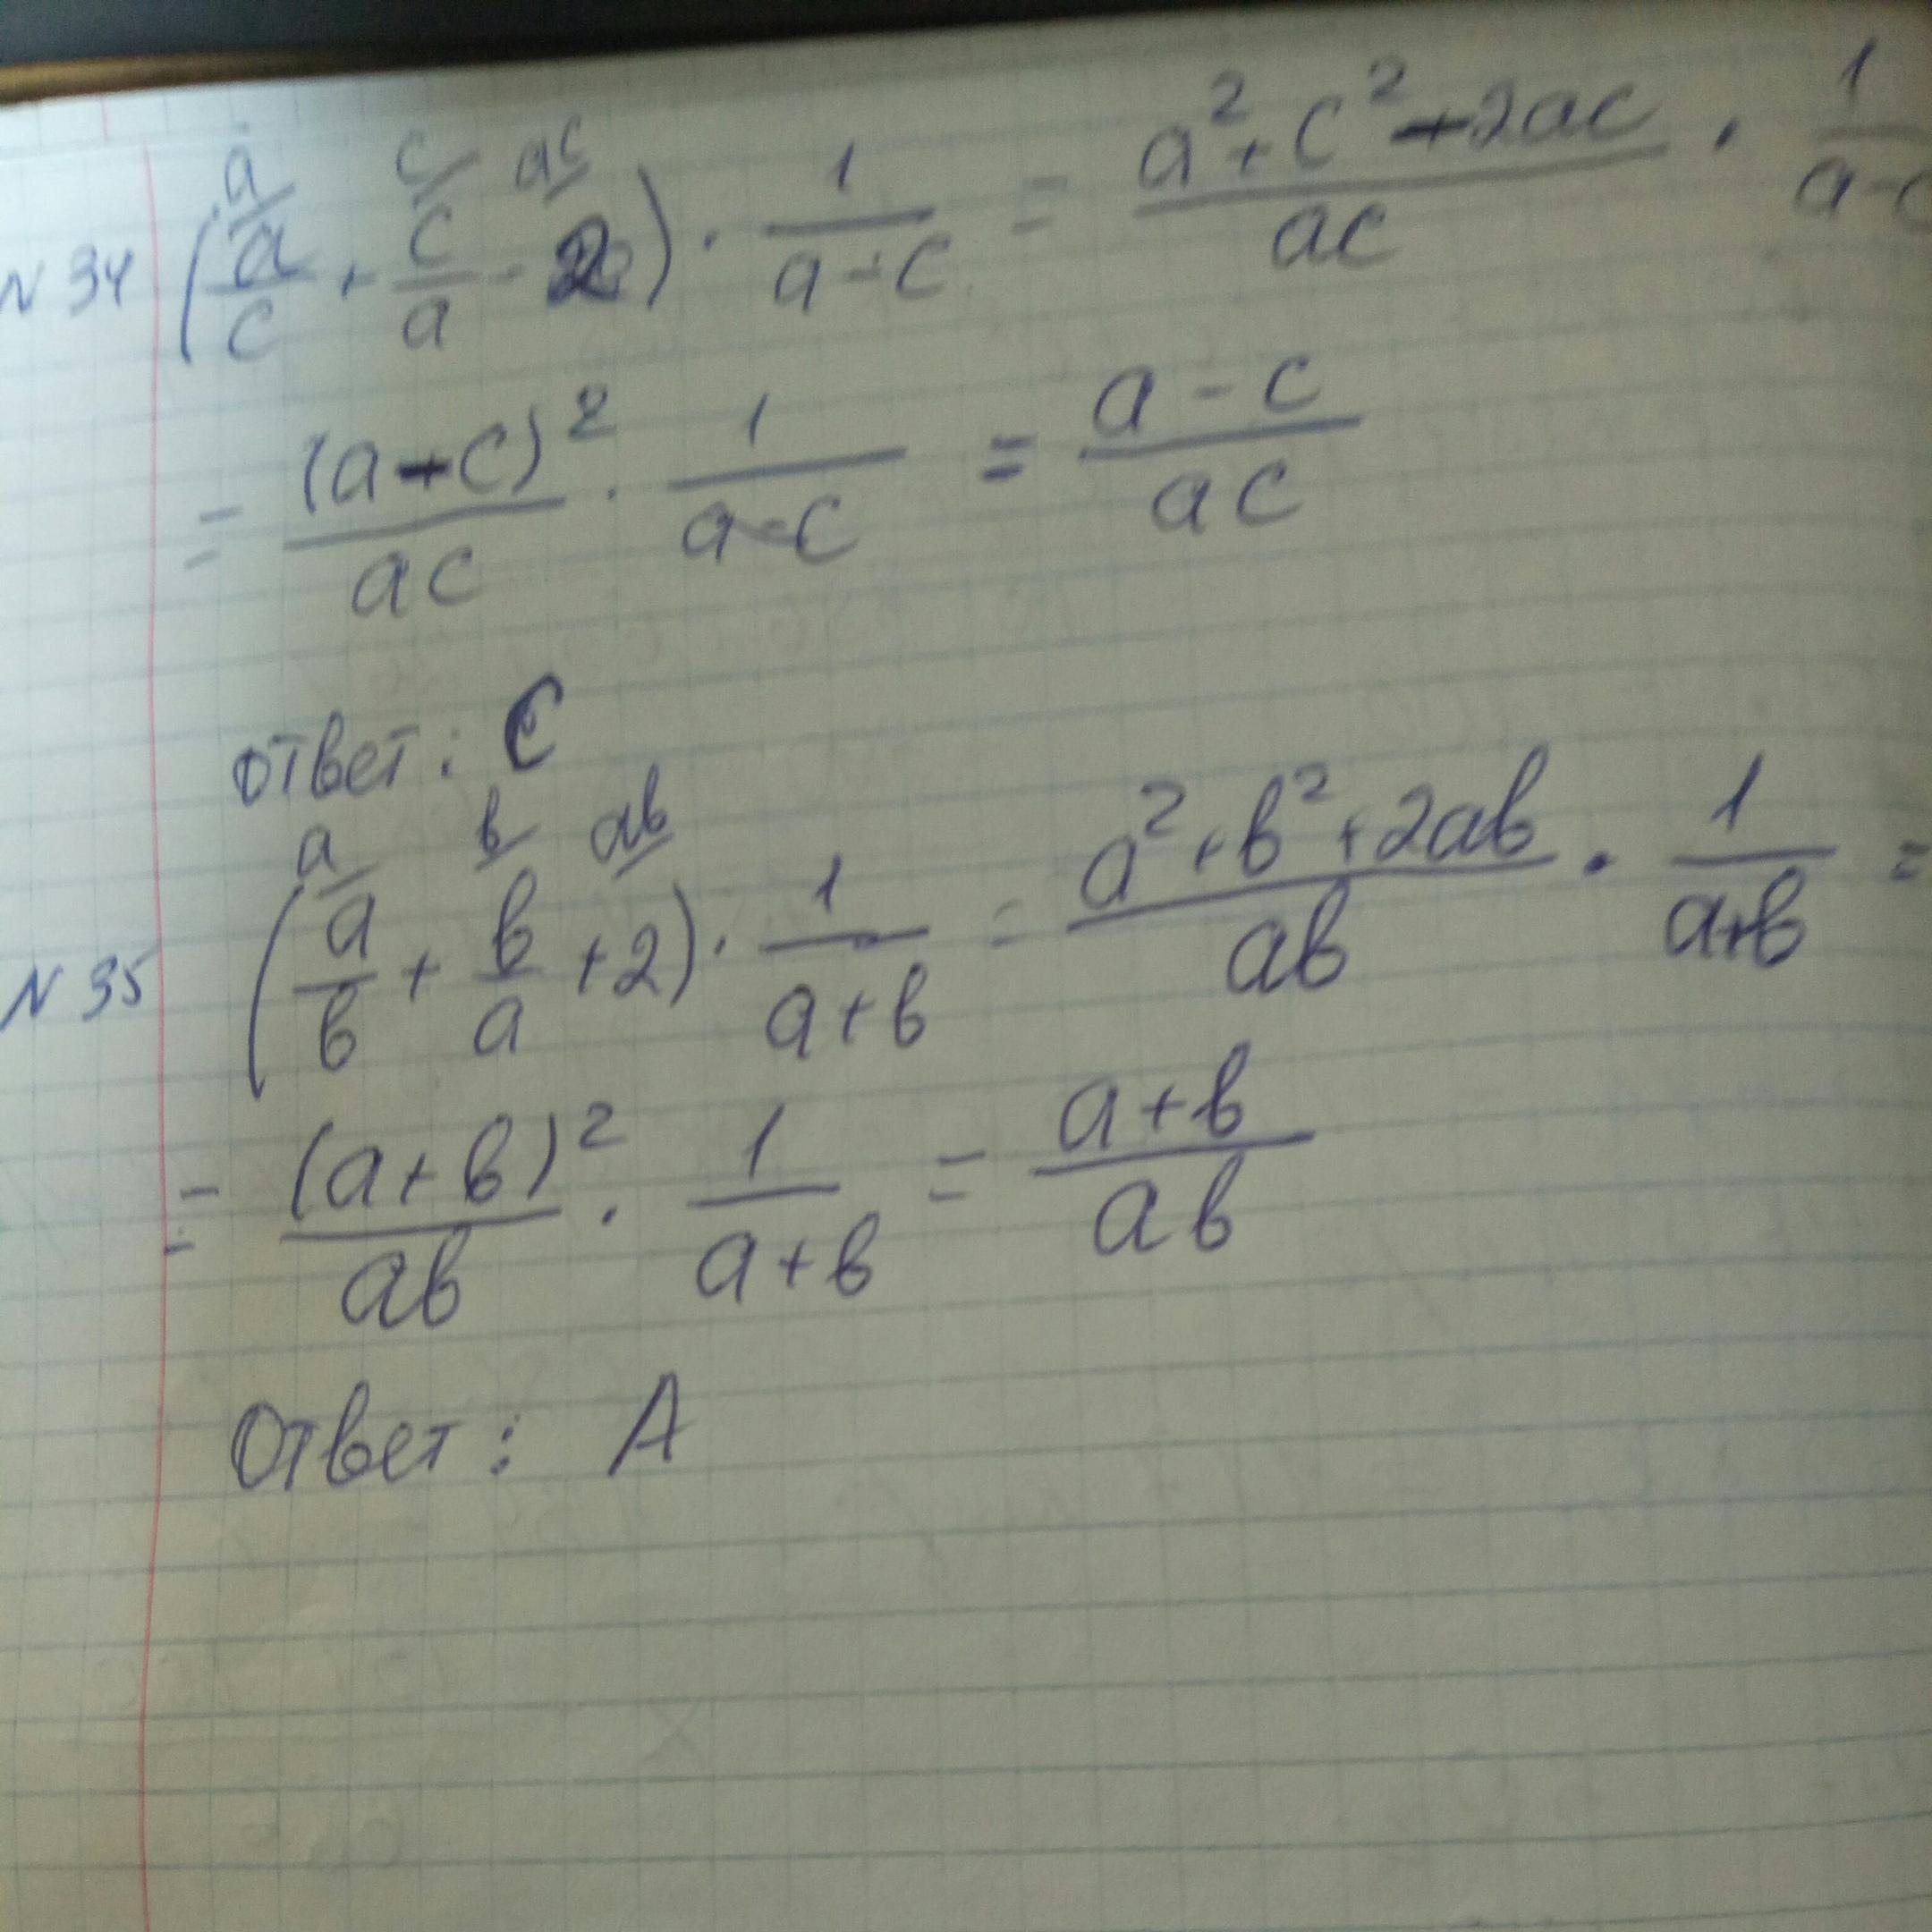 N 34 (a/c + c/a - 2) · 1/(a-c) = (a²+c²-2ac)/(ac) · 1/(a-c)
= (a-c)²/(ac) · 1/(a-c) = (a-c)/(ac)
ответ: C
N 35 (a/в + в/a + 2) · 1/(a+в) = (a²+в²+2aв)/(aв) · 1/(a+в) =
= (a+в)²/(aв) · 1/(a+в) = (a+в)/(aв)
Ответ: A